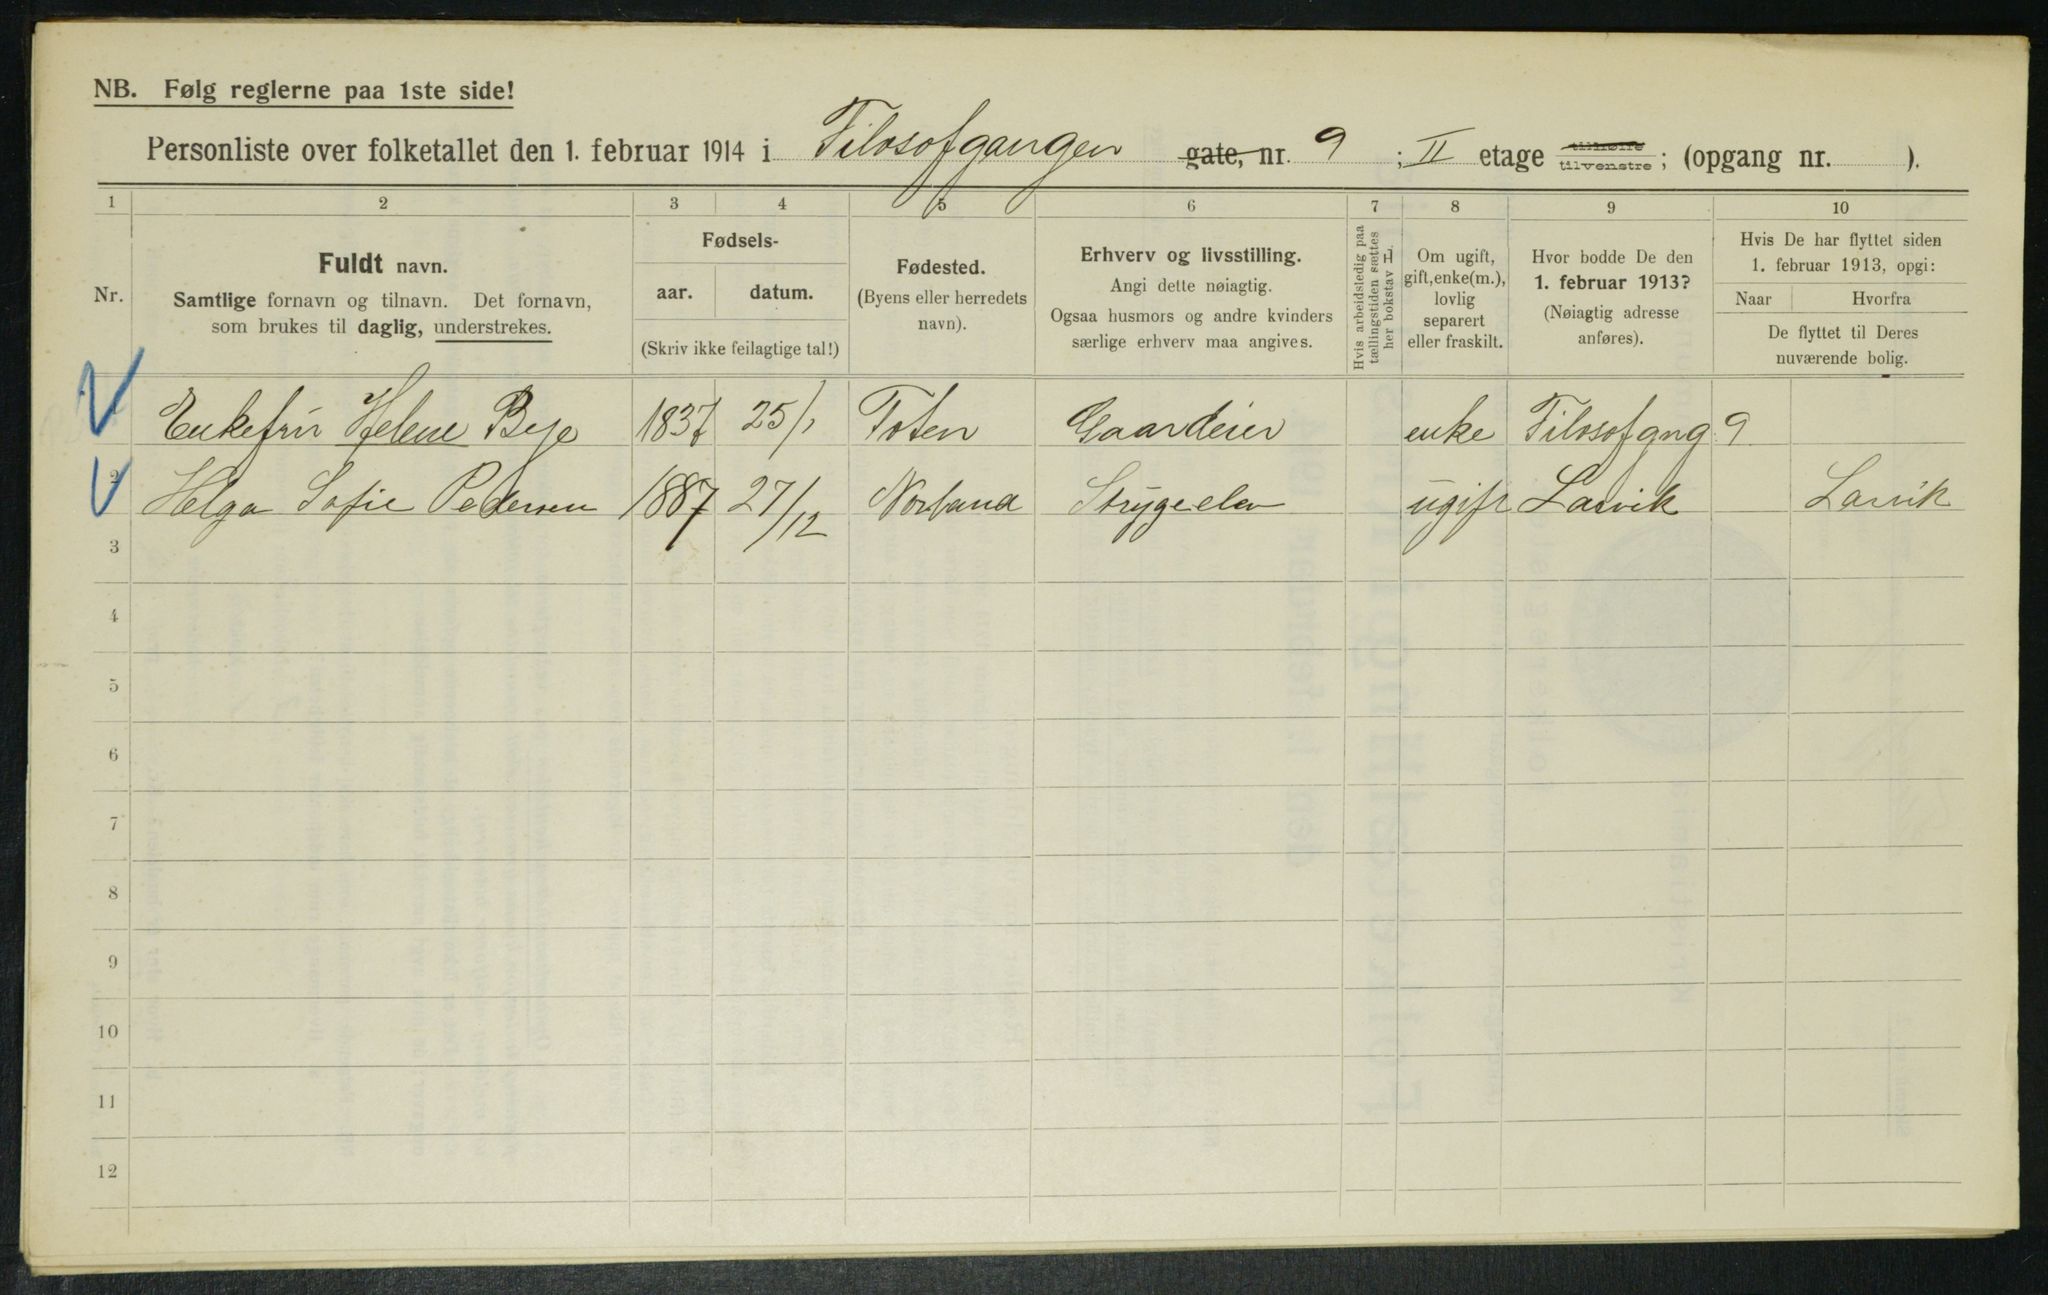 NB. Følg reglerne paa 1ste side!
Personliste over folketallet den 1. februar 1914 i Filosofgangen gate, nr. 9 ; II etage tilhøire tilvenstre; (opgang nr. ).
1 2 3 4 5 6 7 8 9 10
Nr.
Fuldt navn.
Samtlige fornavn og tilnavn. Det fornavn,
som brukes til daglig, understrekes.
Fødsels-
aar. datum.
(Skriv ikke feilagtige tal!)
Fødested.
(Byens eller herredets
navn).
Erhverv og livsstilling.
Angi dette nøiagtig.
Ogsaa husmors og andre kvinders
særlige erhverv maa angives.
Hvis arbeidsledig paa
tællingstiden sættes
her bokstav L.
Om ugift,
gift, enke(m.),
lovlig
separert
eller fraskilt.
Hvor bodde De den
1. februar 1913?
(Nøiagtig adresse
anføres).
Hvis De har flyttet siden
1. februar 1913, opgi:
Naar Hvorfra
De flyttet til Deres
nuværende bolig.
Enkefru Helene Bye 1837 25/1 Toten Gaardeier enke Filosofgng 9
2 Helga Sofie Pedersen 1887 27/12 Strygeelev ugift Larvik Larvik
3
4
5
6
7
8
9
10
11
12